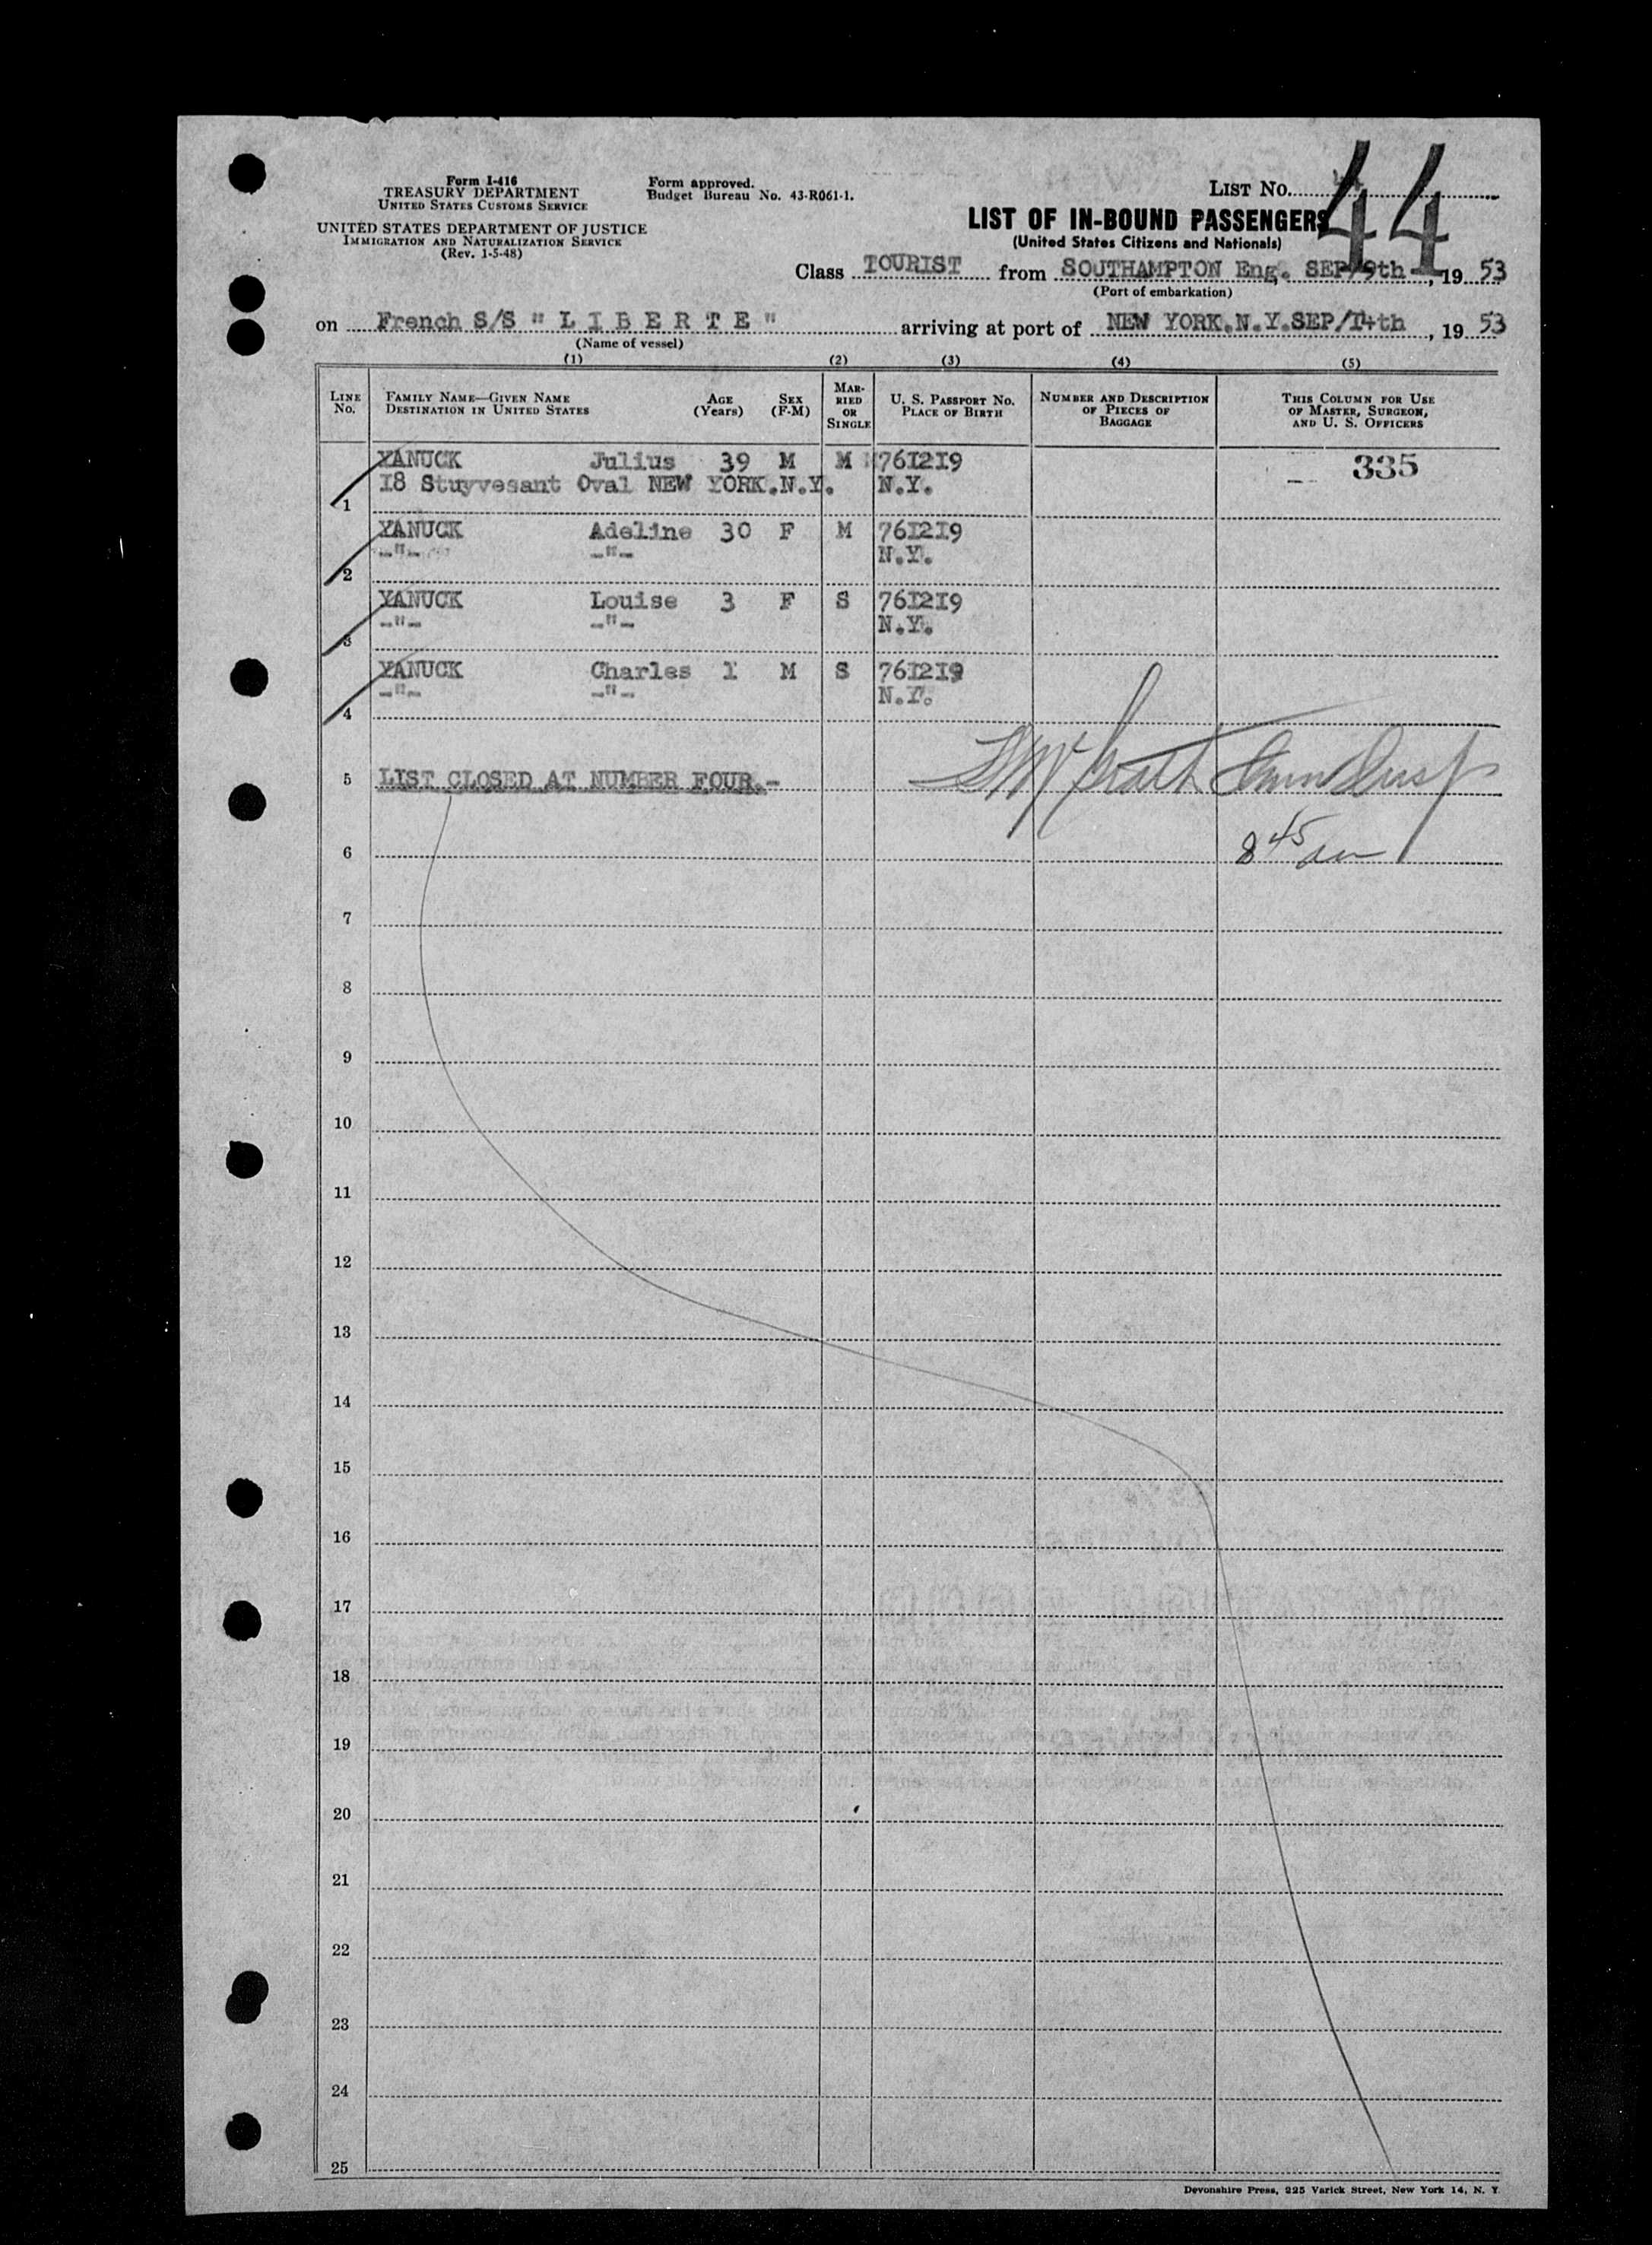 Form I-416
TREASURY DEPARTMENT
UNITED STATES CUSTOMS SERVICE
UNITED STATES DEPARTMENT OF JUSTICE
IMMIGRATION AND NATURALIZATION SERVICE
(Rev. 1-5-48)
Form approved.
Budget Bureau No. 43-R061-1.
LIST No.
44
LIST OF IN-BOUND PASSENGERS
(United States Citizens and Nationals)
Class TOURIST from SOUTHAMPTON Eng. SEP/9th, 1953
(Port of embarkation)
on French S/S " L I B E R T E " arriving at port of NEW YORK.N.Y.SEP/I4th, 1953
(Name of vessel)
(1) (2) (3) (4) (5)
LINE No. FAMILY NAME—GIVEN NAME DESTINATION IN UNITED STATES AGE (Years) SEX (F-M) MARRIED OR SINGLE U. S. PASSPORT No. PLACE OF BIRTH NUMBER AND DESCRIPTION OF PIECES OF BAGGAGE THIS COLUMN FOR USE OF MASTER, SURGEON, AND U. S. OFFICERS
YANUCK Julius 39 M M 76I2I9 335
1 I8 Stuyvesant Oval NEW YORK.N.Y. N.Y.
YANUCK Adeline 30 F M 76I2I9
2 -"- -"- N.Y.
YANUCK Louise 3 F S 76I2I9
3 -"- -"- N.Y.
YANUCK Charles I M S 76I2I9
4 -"- -"- N.Y.
5 LIST CLOSED AT NUMBER FOUR.-
6 8 45 am
7
8
9
10
11
12
13
14
15
16
17
18
19
20
21
22
23
24
25
Devonshire Press, 225 Varick Street, New York 14, N. Y.